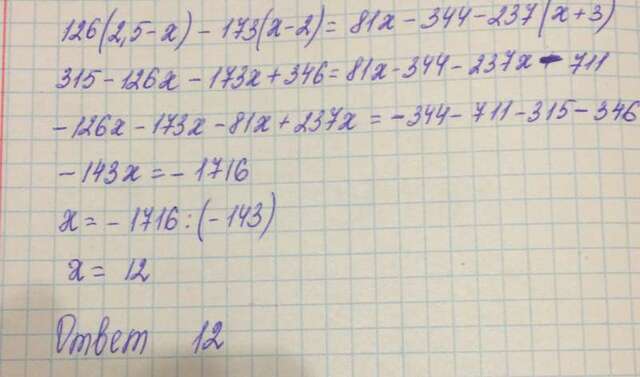 126(2,5-x) - 173(x-2) = 81x - 344 - 237(x+3)
315 - 126x - 173x + 346 = 81x - 344 - 237x - 711
- 126x - 173x - 81x + 237x = - 344 - 711 - 315 - 346
- 143x = - 1716
x = - 1716 : (-143)
x = 12
Ответ 12